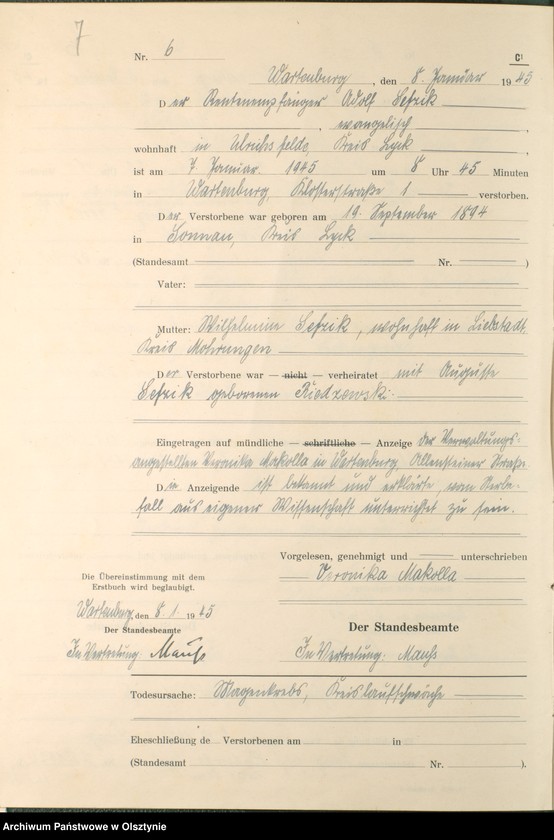 7
Nr. 6
C
Wartenburg, den 8. Januar 1945
Der Rentenempfänger Adolf Sefzik
, evangelisch,
wohnhaft in Ulrichsfelde, Kreis Lyck
ist am 7. Januar 1945 um 8 Uhr 45 Minuten
in Wartenburg, Klosterstraße 1 verstorben.
Der Verstorbene war geboren am 19. September 1894
in Sonnau, Kreis Lyck
(Standesamt Nr. )
Vater:
Mutter: Wilhelmine Sefzik, wohnhaft in Liebstadt,
Kreis Mohrungen
Der Verstorbene war — nicht — verheiratet mit Auguste
Sefzik geborenen
Eingetragen auf mündliche — schriftliche — Anzeige der Verwaltungs-
angestellten Veronika Makolla in Wartenburg, Allensteiner Straße
Die Anzeigende ist bekannt und erklärte, vom Sterbe-
fall aus eigener Wissenschaft unterrichtet zu sein.
Vorgelesen, genehmigt und unterschrieben
Veronika Makolla
Die Übereinstimmung mit dem
Erstbuch wird beglaubigt.
Wartenburg, den 8. 1. 1945
Der Standesbeamte
In Vertretung:
Der Standesbeamte
In Vertretung:
Todesursache: Magenkrebs, Kreislaufschwäche
Eheschließung de Verstorbenen am in
(Standesamt Nr. ).
Archiwum Państwowe w Olsztynie